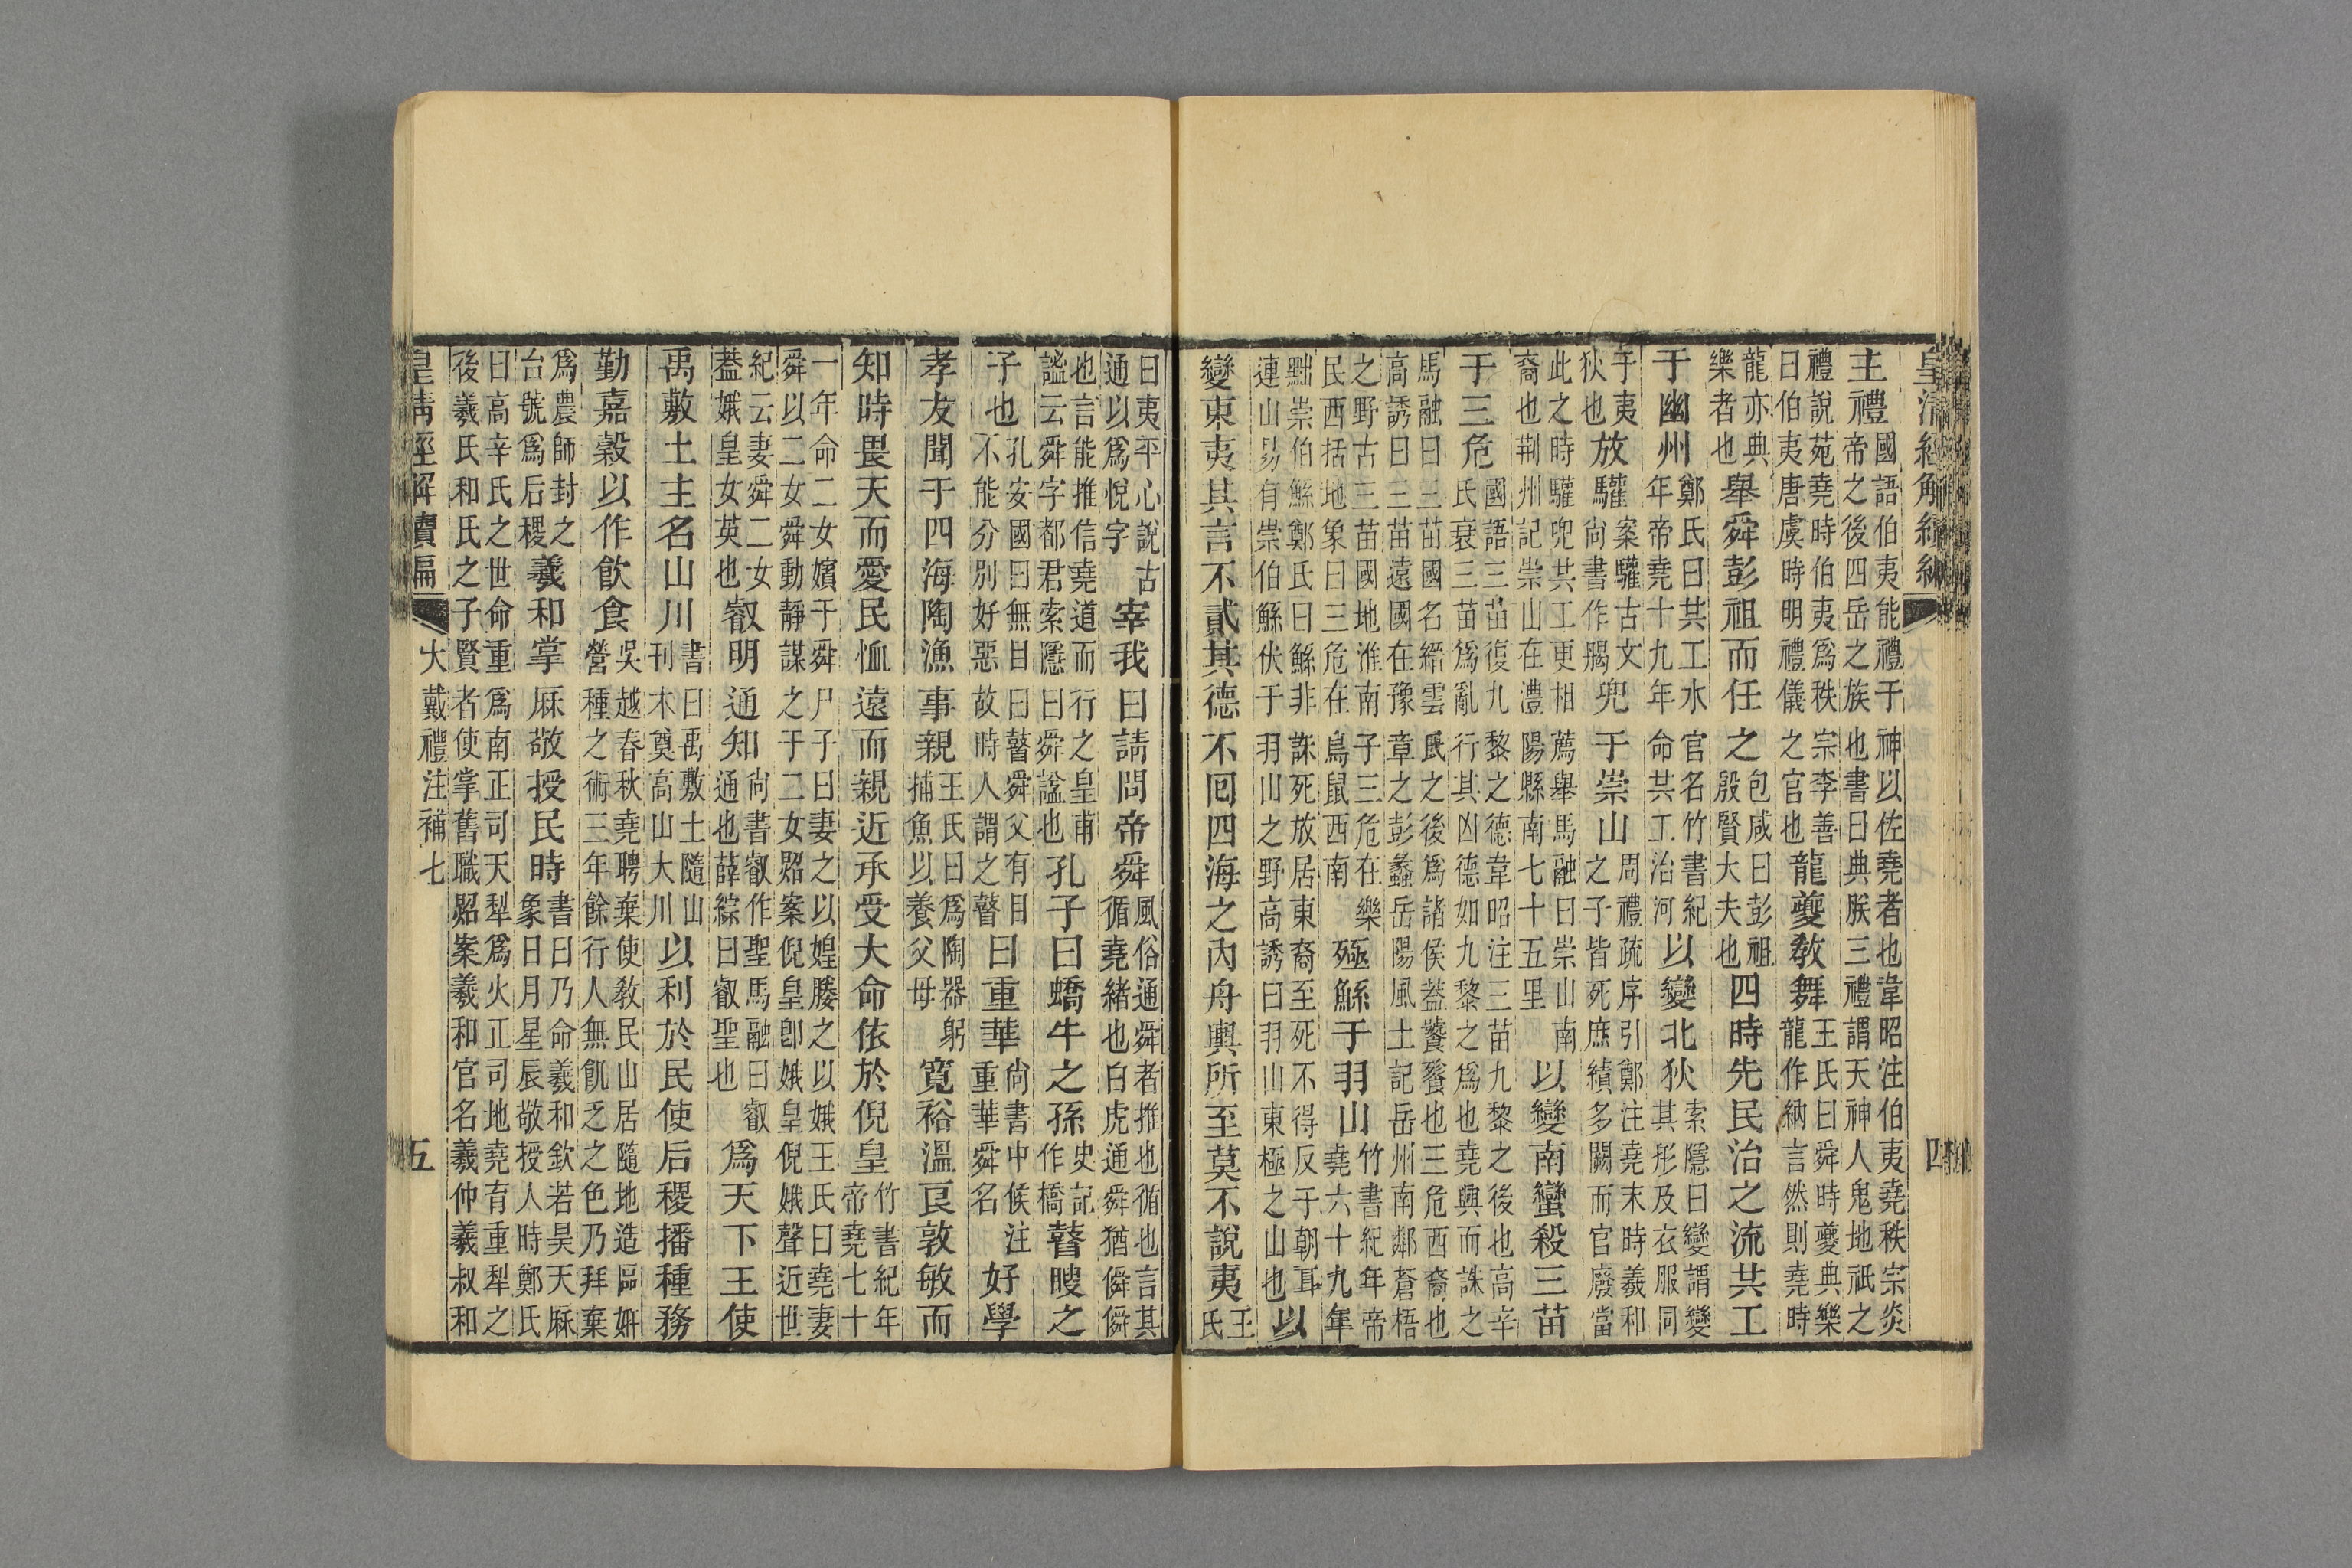 皇清經解續編　四
主禮國語伯夷能禮于神以佐堯者也韋昭注伯夷堯秩宗炎帝之後四岳之族也書曰典朕三禮謂天神人鬼地祇之
禮說苑堯時伯夷爲秩宗李善曰伯夷唐虞時明禮儀之官也龍夔敎舞王氏曰舜時夔典樂龍作納言然則堯時
龍亦典樂者也舉舜彭祖而任之包咸曰彭祖殷賢大夫也四時先民治之流共工
于幽州鄭氏曰共工水官名竹書紀年帝堯十九年命共工治河以變北狄索隱曰變謂變其形及衣服同
于夷狄也放驩案驩古文尚書作鴅兜于崇山周禮疏序引鄭注堯末時羲和之子皆死庶績多闕而官廢當
此之時驩兜共工更相薦舉馬融曰崇山南裔也荆州記崇山在澧陽縣南七十五里以變南蠻殺三苗
于三危國語三苗復九黎之德韋昭注三苗九黎之後也高辛氏衰三苗爲亂行其凶德如九黎之爲也堯興而誅之
馬融曰三苗國名縉雲氏之後爲諸侯葢饕餮也三危西裔也高誘曰三苗遠國在豫章之彭蠡岳陽風土記岳州南鄰蒼梧
之野古三苗國地淮南子三危在樂民西括地象曰三危在鳥鼠西南殛鯀于羽山竹書紀年帝堯六十九年
黜崇伯鯀鄭氏曰鯀非誅死放居東裔至死不得反于朝耳連山易有崇伯鯀伏于羽山之野高誘曰羽山東極之山也以
變東夷其言不貳其德不回四海之內舟輿所至莫不說夷王氏
曰夷平心說古通以爲悅字宰我曰請問帝舜風俗通舜者推也循也言其循堯緒也白虎通舜猶僢僢
也言能推信堯道而行之皇甫謐云舜字都君索隱曰舜謚也孔子曰蟜牛之孫史記作橋瞽瞍之
子也孔安國曰無目曰瞽舜父有目不能分別好惡故時人謂之瞽曰重華尚書中候注重華舜名好學
孝友聞于四海陶漁事親王氏曰爲陶器躬捕魚以養父母寬裕溫良敦敏而
知時畏天而愛民恤遠而親近承受大命依於倪皇竹書紀年帝堯七十
一年命二女嬪于舜尸子曰妻之以媓媵之以娥王氏曰堯妻舜以二女舜動靜謀之于二女照案倪皇卽娥皇倪娥聲近世
紀云妻舜二女葢娥皇女英也叡明通知尚書叡作聖馬融曰叡通也薛綜曰叡聖也爲天下王使
禹敷土主名山川書曰禹敷土隨山刊木奠高山大川以利於民使后稷播種務
勤嘉穀以作飮食吳越春秋堯聘棄使敎民山居隨地造區姸營種之術三年餘行人無飢乏之色乃拜棄
爲農師封之台號爲后稷羲和掌厤敬授民時書曰乃命羲和欽若昊天厤象日月星辰敬授人時鄭氏
曰高辛氏之世命重爲南正司天犁爲火正司地堯育重犁之後羲氏和氏之子賢者使掌舊職照案羲和官名羲仲羲叔和
皇清經解續編　大戴禮注補七　五